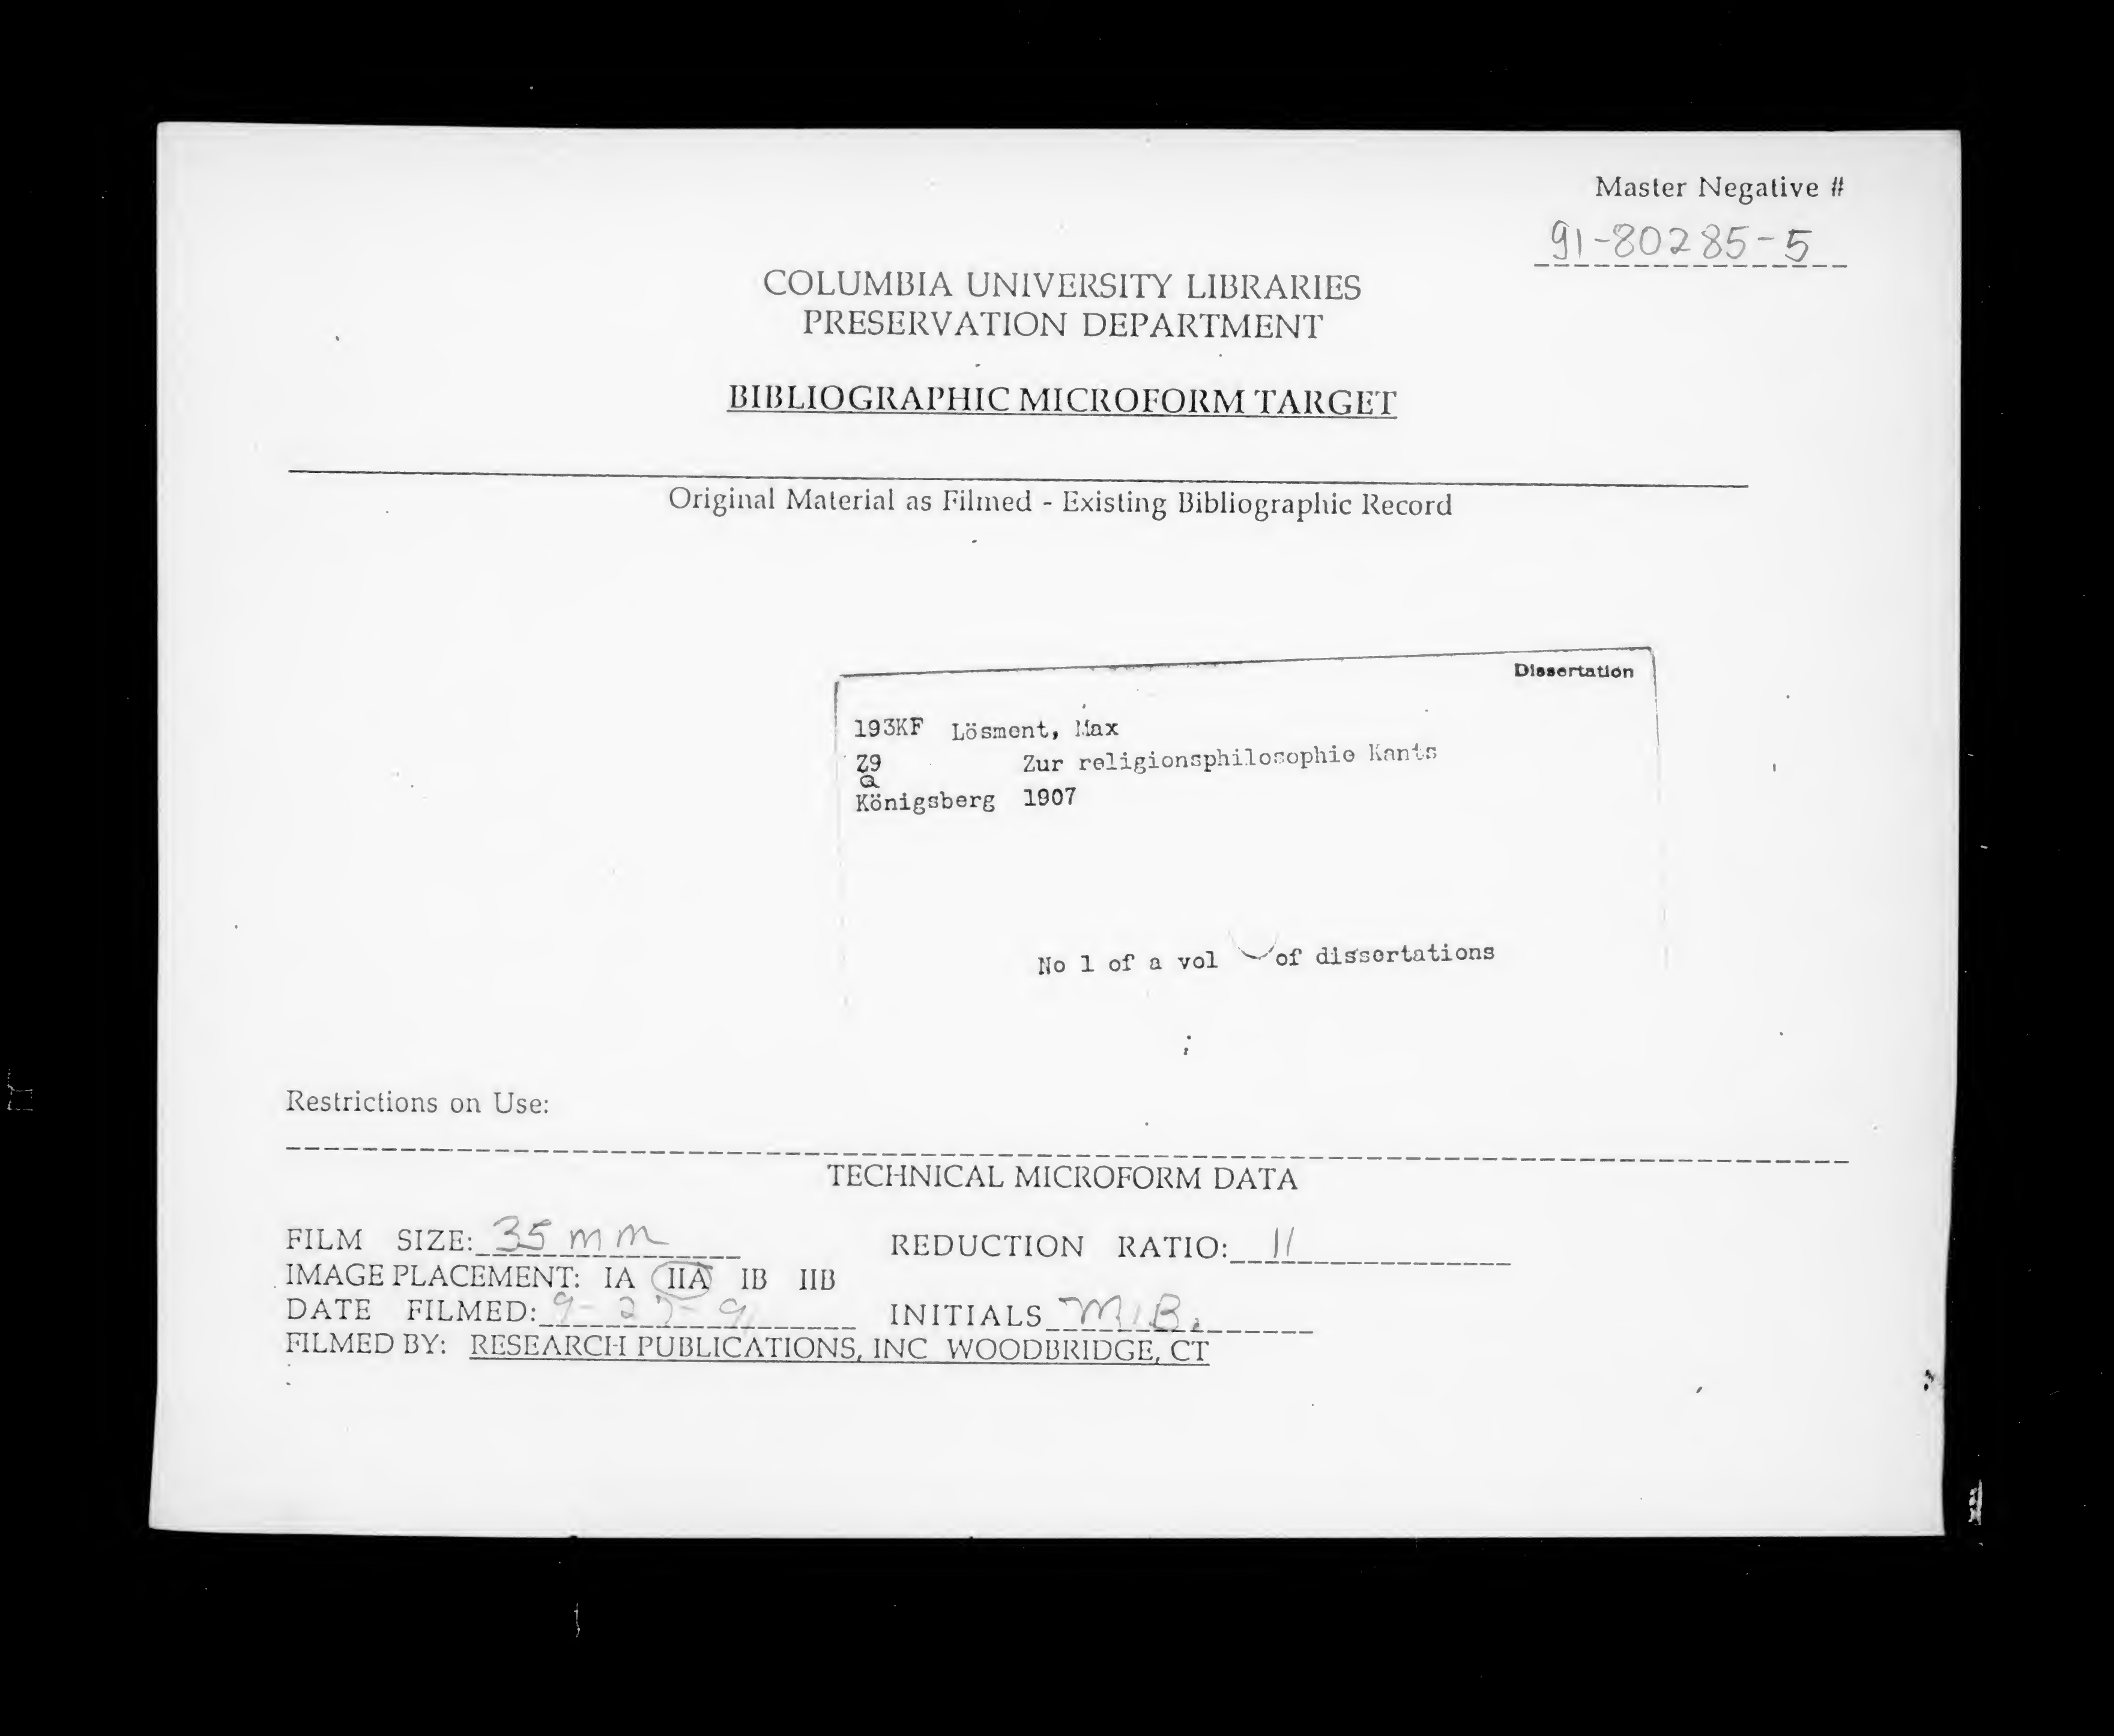 Master Negative #
91-80285-5
COLUMBIA UNIVERSITY LIBRARIES
PRESERVATION DEPARTMENT
BIBLIOGRAPHIC MICROFORM TARGET
Original Material as Filmed - Existing Bibliographic Record
Dissertation
193KF Lösment, Max
Z9 Zur religionsphilosophie Kants
Q
Königsberg 1907
No 1 of a vol of dissertations
Restrictions on Use:
TECHNICAL MICROFORM DATA
FILM SIZE: 35 mm REDUCTION RATIO: 11
IMAGE PLACEMENT: IA IIA IB IIB
DATE FILMED: INITIALS M.B.
FILMED BY: RESEARCH PUBLICATIONS, INC WOODBRIDGE, CT